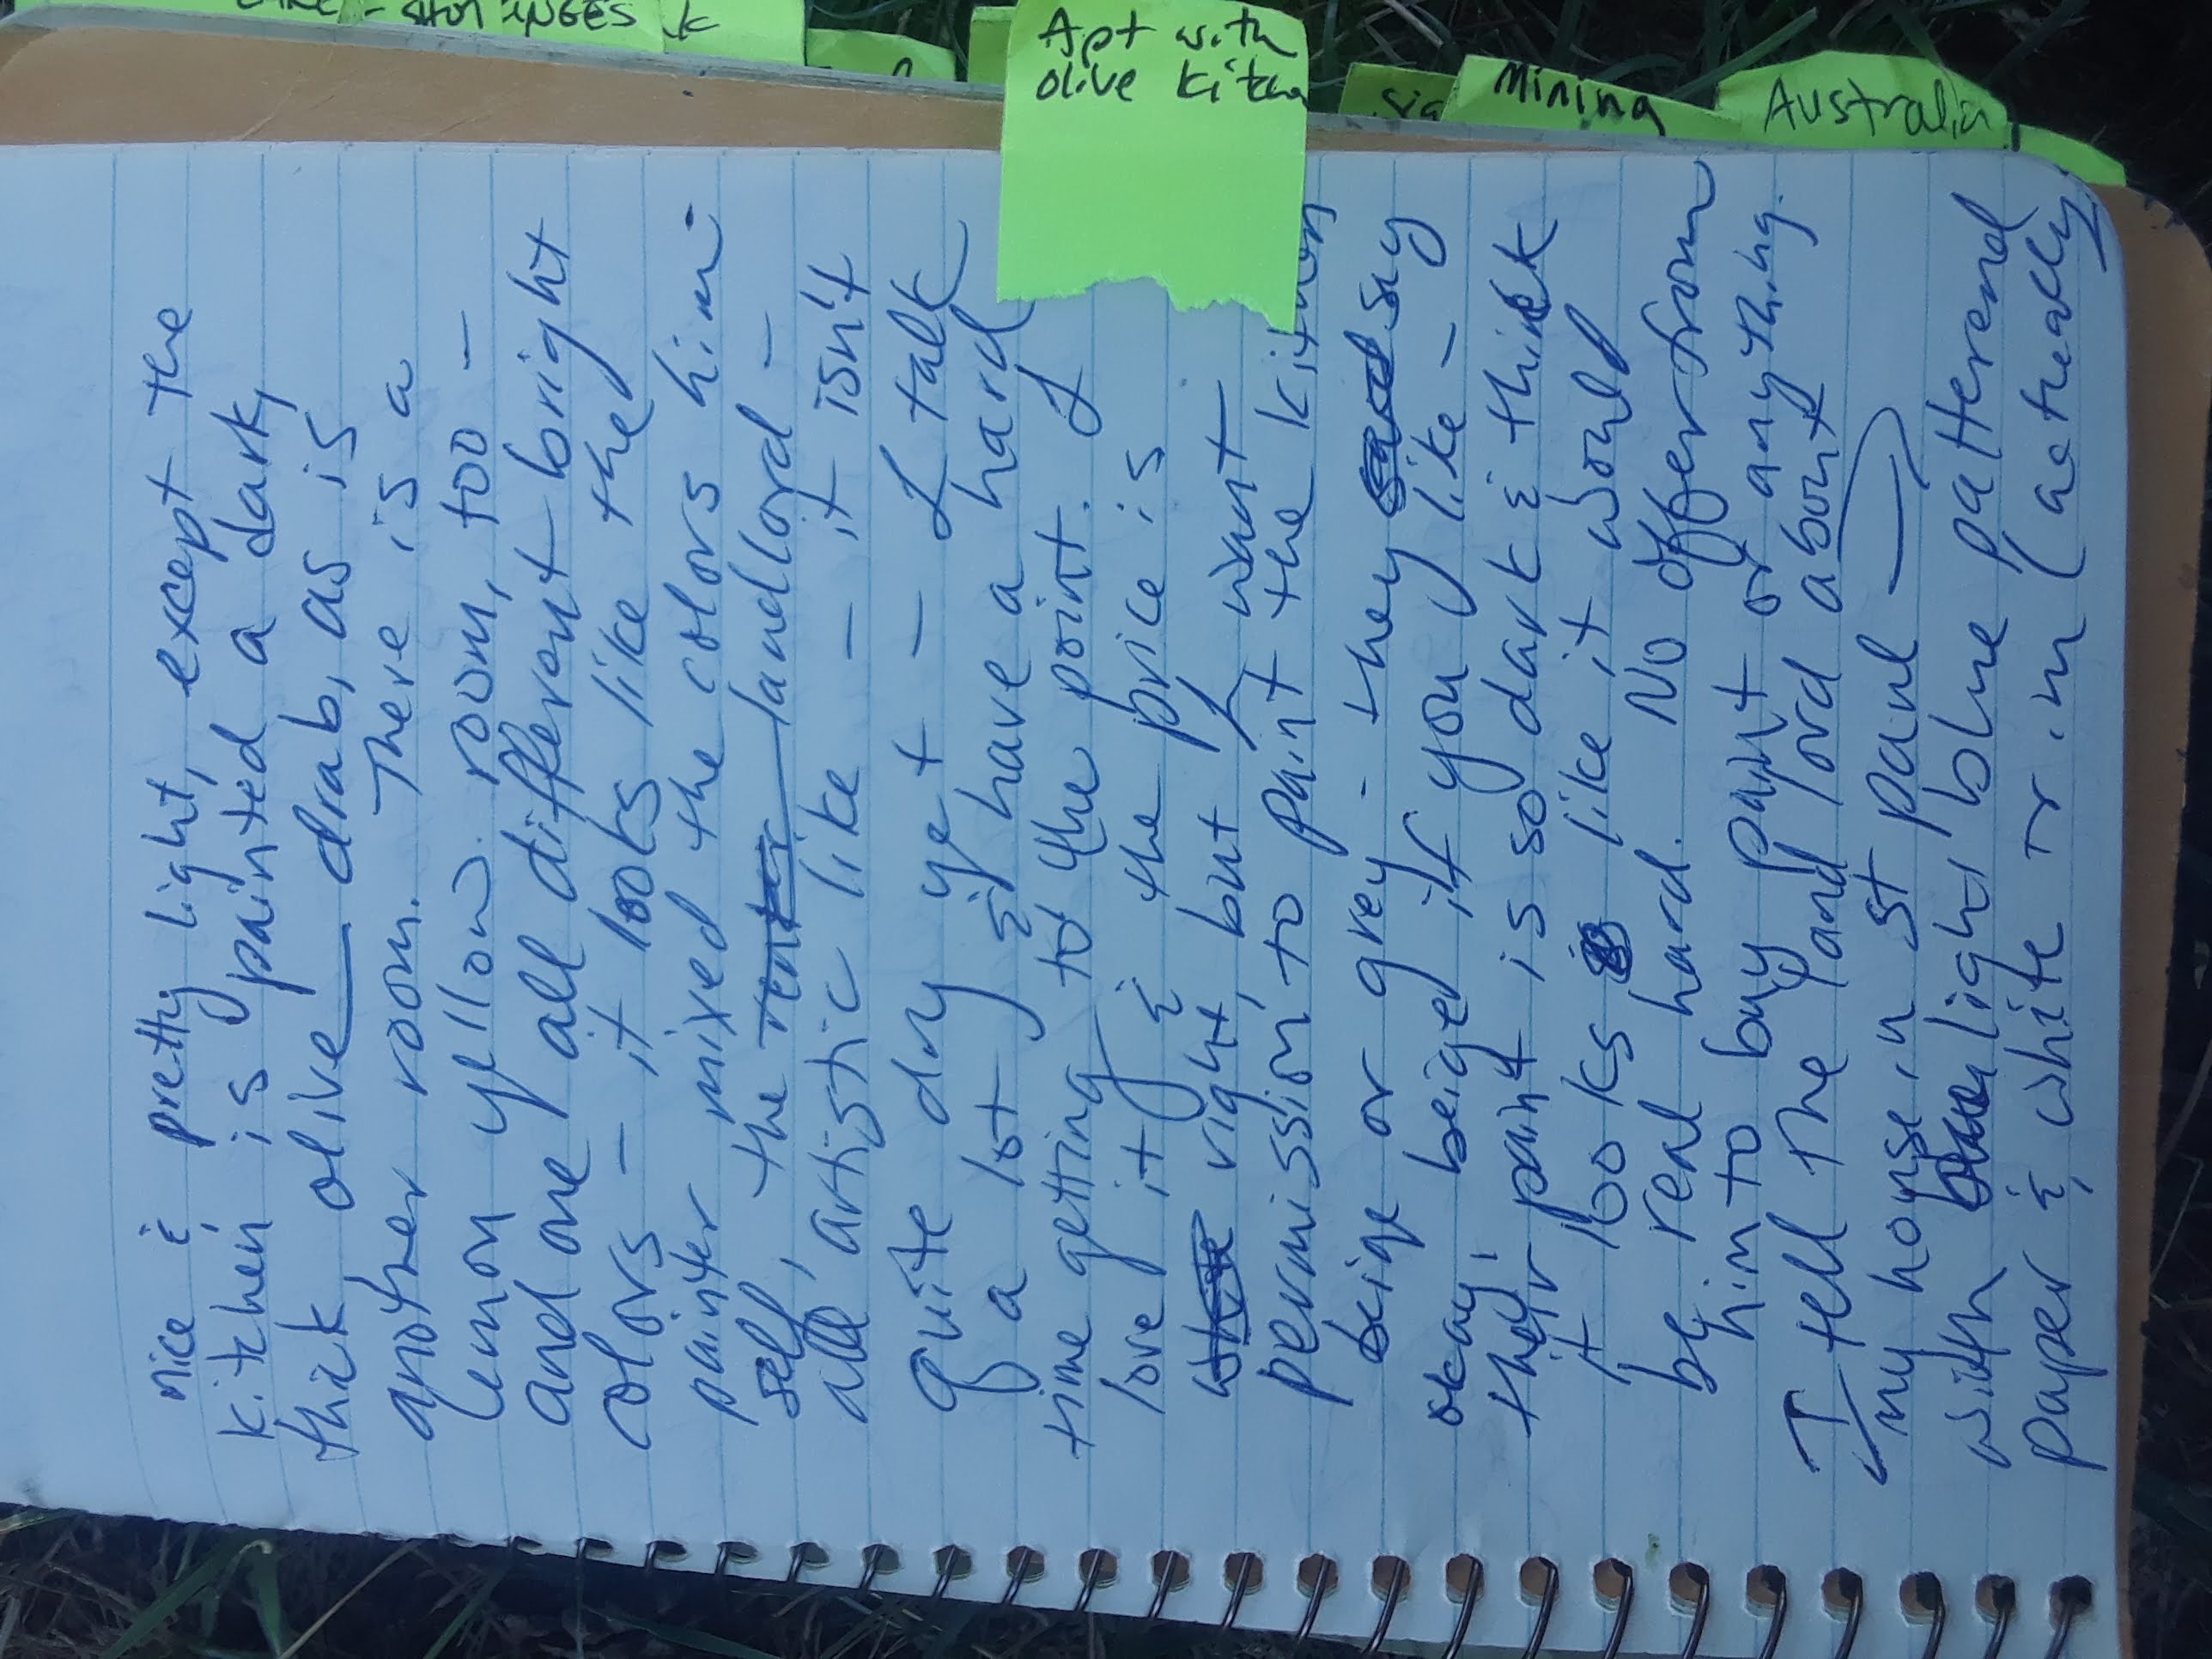 SHOT INGES K
Apt with
olive kitchen
sia
Mining
Australia
nice & pretty light, except the
kitchen is painted a dark,
thick olive drab, as is
another room. There is a
lemon yellow room, too -
and one all different bright
colors - it looks like the
painter mixed the colors him-
self, the landlord -
all artistic like - it isn't
quite dry yet - I talk
a lot & have a hard
time getting to the point. I
love it & the price is
right, but I want
permission to paint the kitchen
beige or grey - they say
okay, beige if you like -
their paint is so dark & thick
it looks like it would
be real hard. No offer from
him to buy paint or anything.
I tell the landlord about
my house in St Paul -
with light blue patterend
paper & white trim (actually